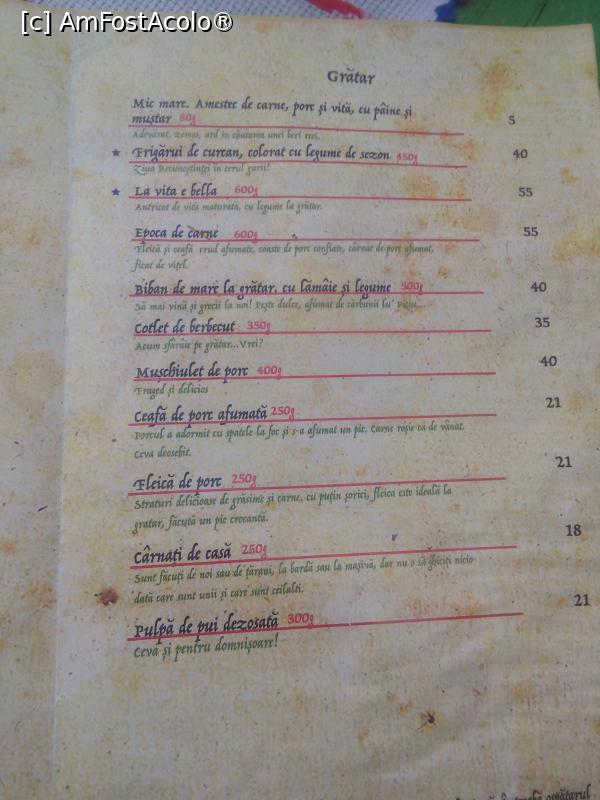 [c] AmFostAcolo®
Grătar
Mic mare. Amestec de carne, porc și vită, cu pâine și
muștar 80g 5
Adevărat, zemos, ard în căutarea unei beri reci.
★ Frigărui de curcan, colorat cu legume de sezon 450g 40
Ziua Recunoștinței în cerul gurii!
★ La vita e bella 600g 55
Antricot de vită maturată, cu legume la grătar.
Epoca de carne 600g 55
Fleică și ceafă crud afumate, coaste de porc confiate, cârnat de porc afumat,
ficat de vițel.
Biban de mare la grătar, cu lămâie și legume 500g 40
Să mai vină și grecii la noi! Pește dulce, afumat de cărbunii lu'
Cotlet de berbecut 350g 35
Acum sfârâie pe grătar...Vrei?
Mușchiuleț de porc 400g 40
Fraged și delicios
Ceafă de porc afumată 250g 21
Porcul a adormit cu spatele la foc și s-a afumat un pic. Carne roșie ca de vânat.
Ceva deosebit.
Fleică de porc 250g 21
Straturi delicioase de grăsime și carne, cu puțin șorici, fleica este ideală la
gratar, făcută un pic crocantă.
Cârnați de casă 250g 18
Sunt făcuți de noi sau de țărani, la bardă sau la mașină, dar nu o să ghiciți nicio-
dată care sunt unii și care sunt ceilalți.
Pulpă de pui dezosată 300g 21
Ceva și pentru domnișoare!